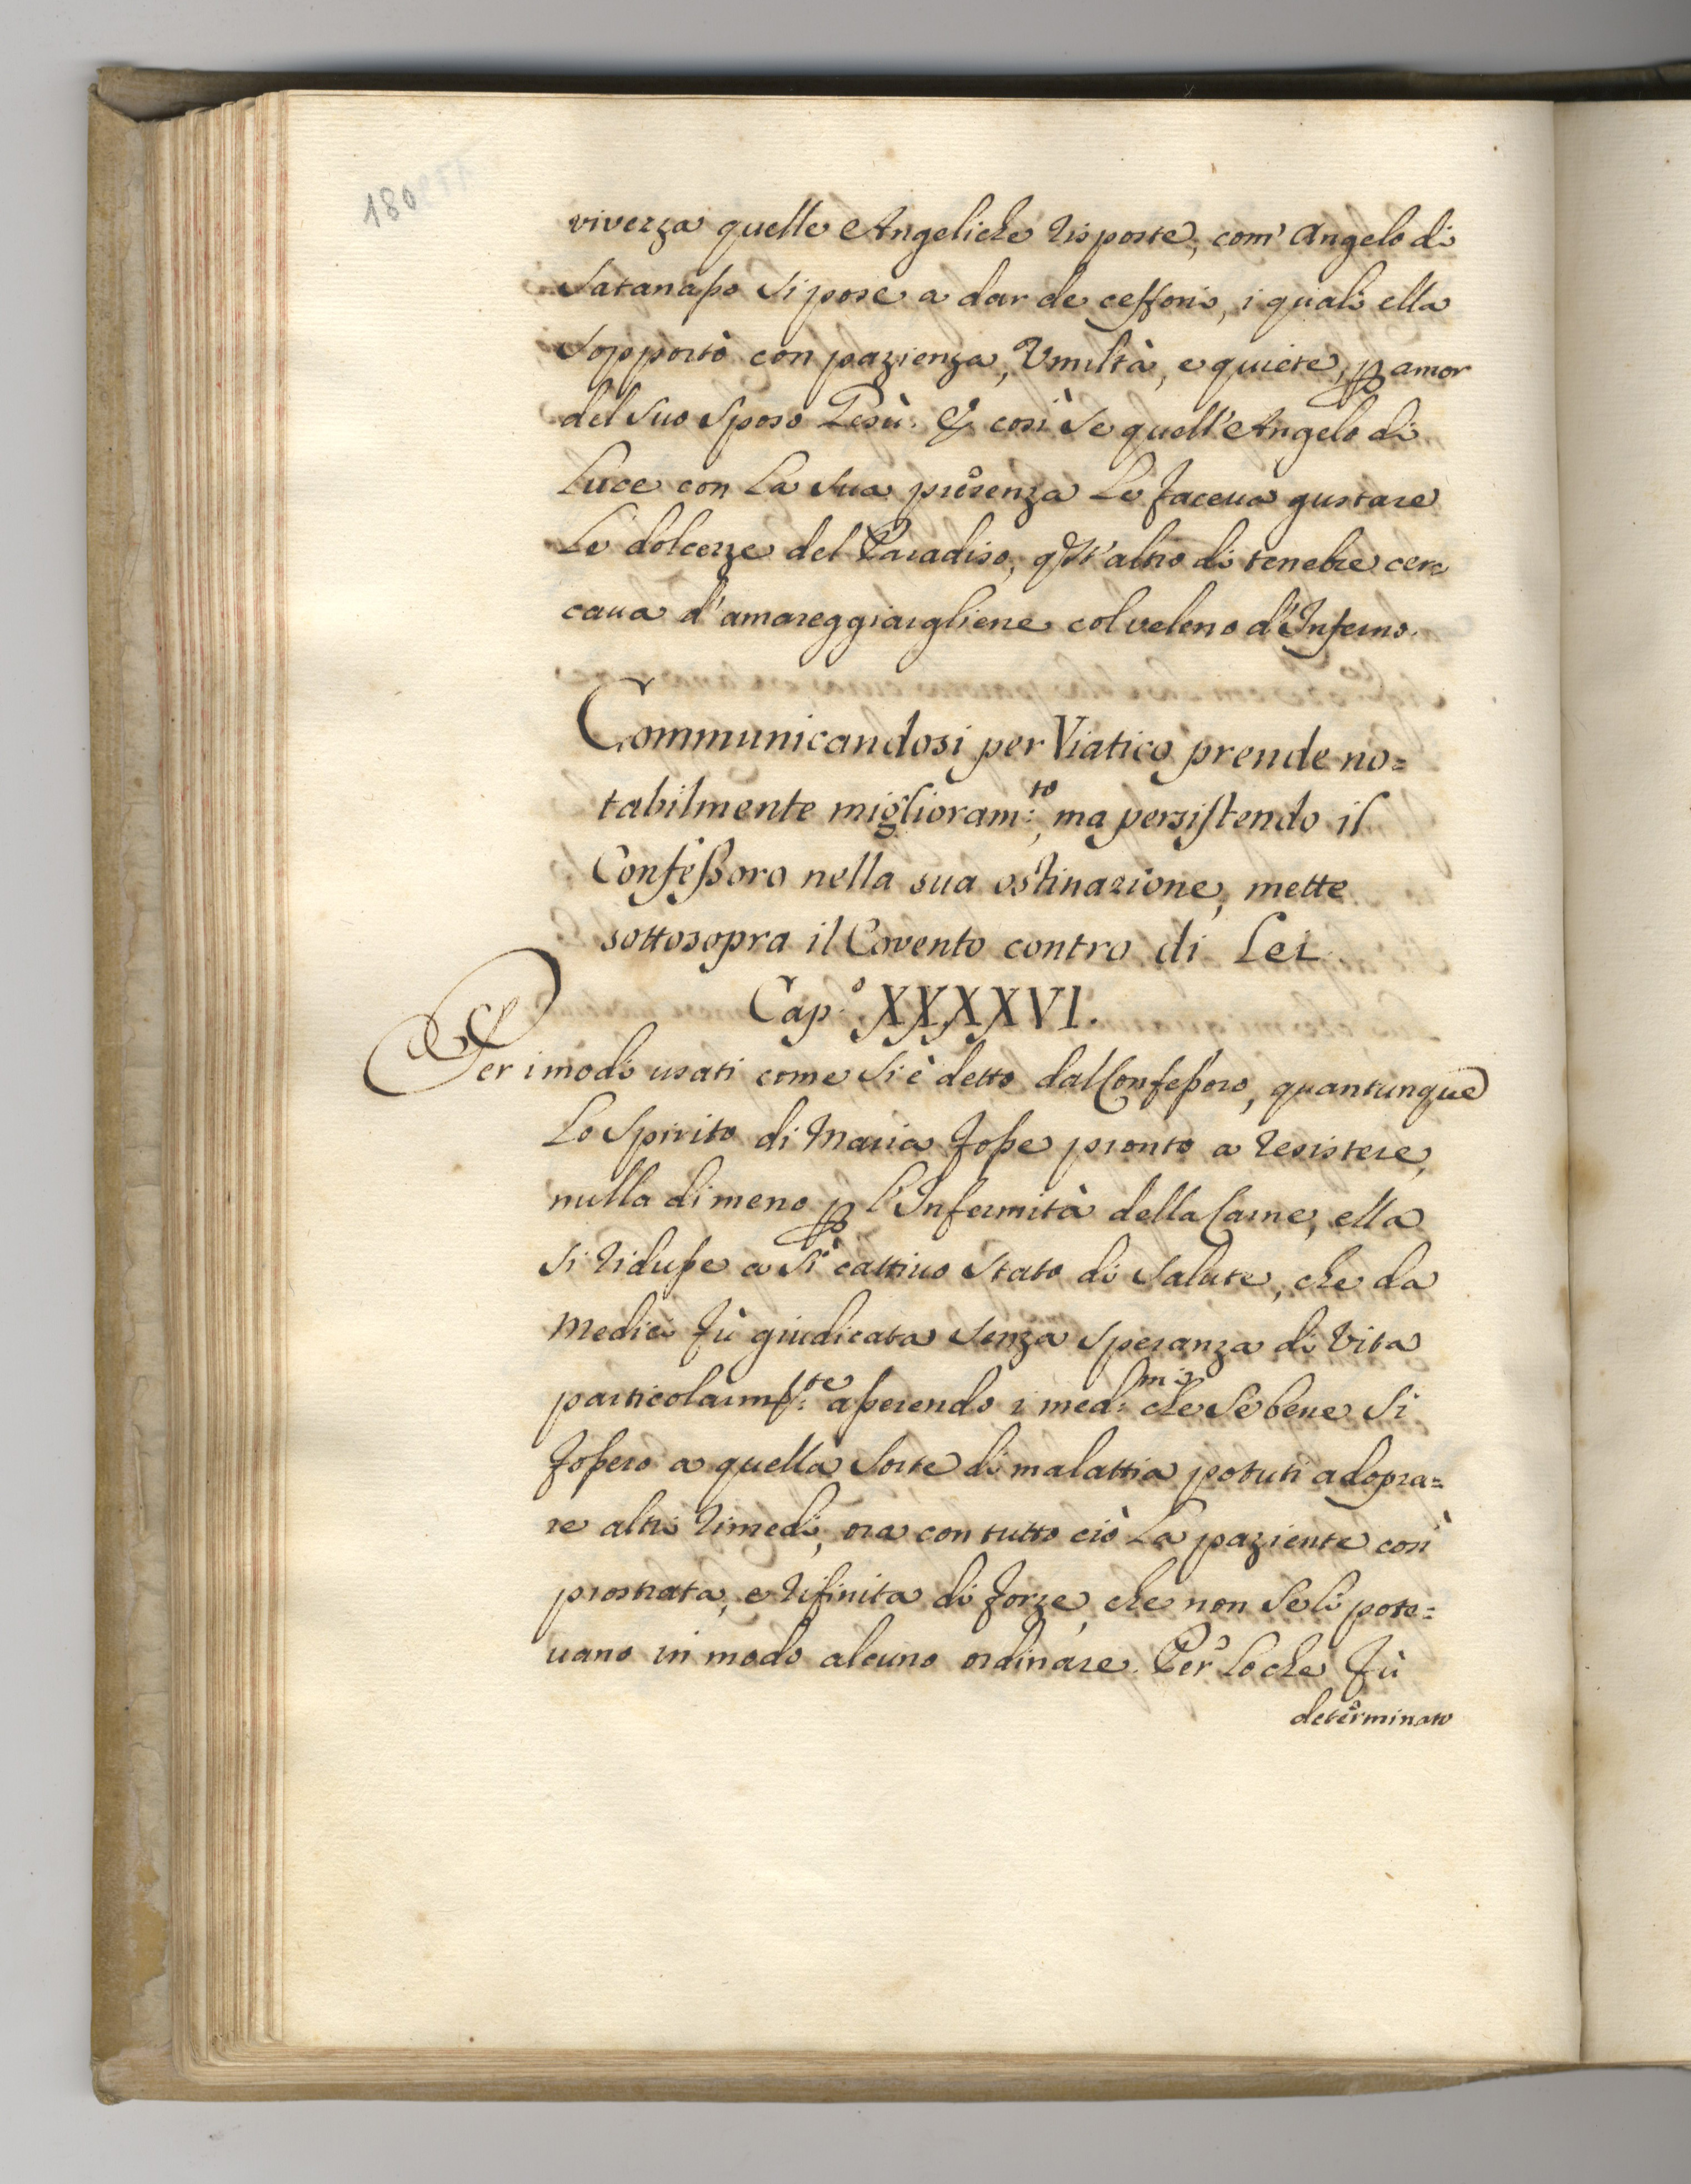 180
viverza quelle Angeliche risposte, com' Angelo di
Satanasso si pose a dar de ceffoni, i quali ella
sopportò con pazienza, Umiltà, e quiete, p amor
del suo sposo Gesù. E così se quell'Angelo di
luce con la sua presenza le faceua gustare
le dolceze del Paradiso, qst'altro di tenebre cer=
caua d'amareggiargliene col veleno d'Inferno.
Communicandosi per Viatico prende no=
tabilmente miglioram:to, ma persistendo il
Confessoro nella sua ostinazione, mette
sottosopra il Covento contro di Lei.
Cap.o XXXXVI.
Per i modi usati come si è detto dal Confessoro, quantunque
lo spirito di Maria fosse pronto a resistere,
nulla dimeno p l'Infermità della Carne, ella
si ridusse a sì cattiuo stato di salute, che da
Medici fù giudicata senza speranza di Vita
particolarm:te asserendo i med:mi che se bene si
fossero a quella sorte di malattia potuti adopra=
re altri rimedi, ora con tutto ciò la paziente così
prostrata, e rifinita di forze, che non seli pote=
uano in modo alcuno ordinare. Per loche fù
determinato